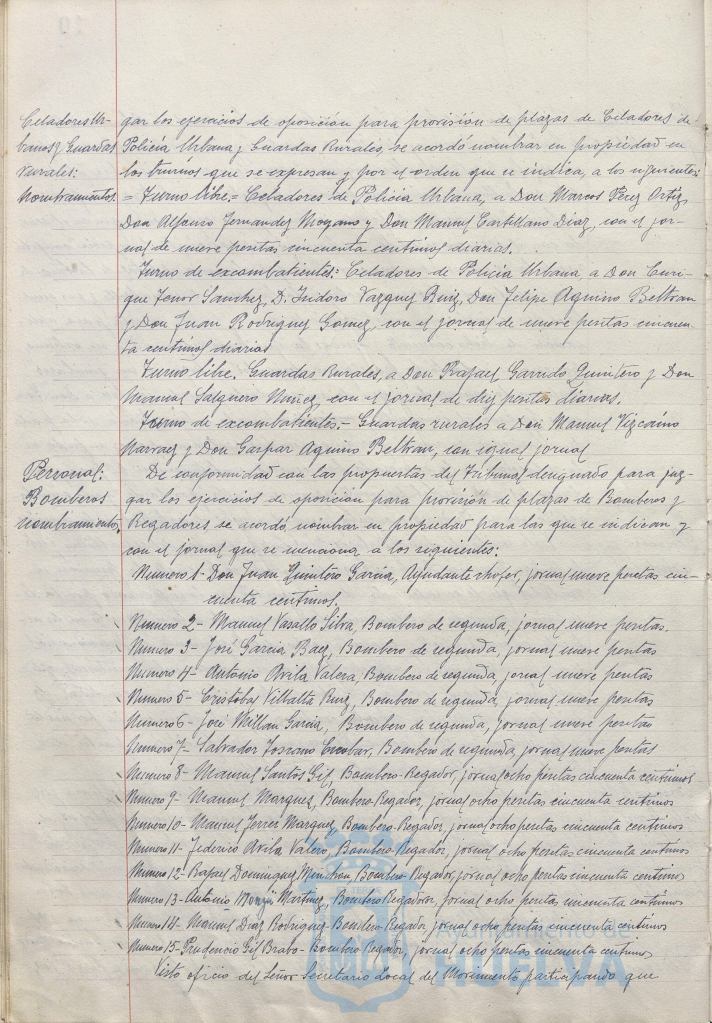 Celadores Ur-
banos y Guardas
rurales:
Nombramientos.
gar los ejercicios de oposición para provisión de plazas de Celadores de
Policía Urbana y Guardas Rurales, se acordó nombrar en propiedad en
los turnos que se expresan y por el orden que se indica, a los siguientes:
= Turno libre.= Celadores de Policía Urbana, a Don Marcos Pérez Ortiz,
Don Alfonso Fernandez Moyano y Don Manuel Castellano Diaz, con el jor-
nal de nueve pesetas cincuenta centimos diarias.
Turno de excombatientes: Celadores de Policía Urbana, a Don Enri-
que Tenor Sanchez, D. Isidoro Vazquez Ruiz, Don Felipe Aquino Beltran
y Don Juan Rodriguez Gomez, con el jornal de nueve pesetas cincuen-
ta centimos diarias
Turno libre. Guardas Rurales, a Don Rafael Garrido Quintero y Don
Manuel Salguero Nuñez con el jornal de diez pesetas diarias.
Turno de excombatientes.- Guardas rurales a Don Manuel Vizcaíno
Narvaez y Don Gaspar Aquino Beltran, con igual jornal
Personal:
Bomberos
nombramientos.
De conformidad con las propuestas del Tribunal designado para juz-
gar los ejercicios de oposición para provisión de plazas de Bomberos y
Regadores se acordó, nombrar en propiedad para las que se indican y
con el jornal que se menciona a los siguientes:
Numero 1- Don Juan Quintero Garcia, Ayudante chofer, jornal nueve pesetas cin-
cuenta centimos.
Numero 2- Manuel Vasallo Silva, Bombero de segunda, jornal nueve pesetas.
Numero 3- José Garcia Baez, Bombero de segunda, jornal nueve pesetas
Numero 4- Antonio Avila Valera, Bombero de segunda, jornal nueve pesetas
Numero 5- Cristobal Villalta Ruiz, Bombero de segunda, jornal nueve pesetas
Numero 6- José Millan Garcia, Bombero de segunda, jornal nueve pesetas
Numero 7- Salvador Toscano Escobar, Bombero de segunda, jornal nueve pesetas
Numero 8- Manuel Santos Gil, Bombero-Regador, jornal ocho pesetas cincuenta centimos
Numero 9- Manuel Marquez, Bombero-Regador, jornal ocho pesetas cincuenta centimos
Numero 10- Manuel Ferrer Marquez, Bombero-Regador, jornal ocho pesetas cincuenta centimos
Numero 11- Federico Avila Valero, Bombero-Regador, jornal ocho pesetas cincuenta centimos
Numero 12- Rafael Dominguez Minchon, Bombero-Regador, jornal ocho pesetas cincuenta centimos
Numero 13- Antonio Martinez, Bombero-Regador, jornal ocho pesetas cincuenta centimos
Numero 14- Manuel Diaz Rodriguez- Bombero-Regador, jornal ocho pesetas cincuenta centimos
Numero 15- Prudencio Gil Brabo- Bombero Regador, jornal ocho pesetas cincuenta centimos
Visto oficio del Señor Secretario Local del Movimiento participando que